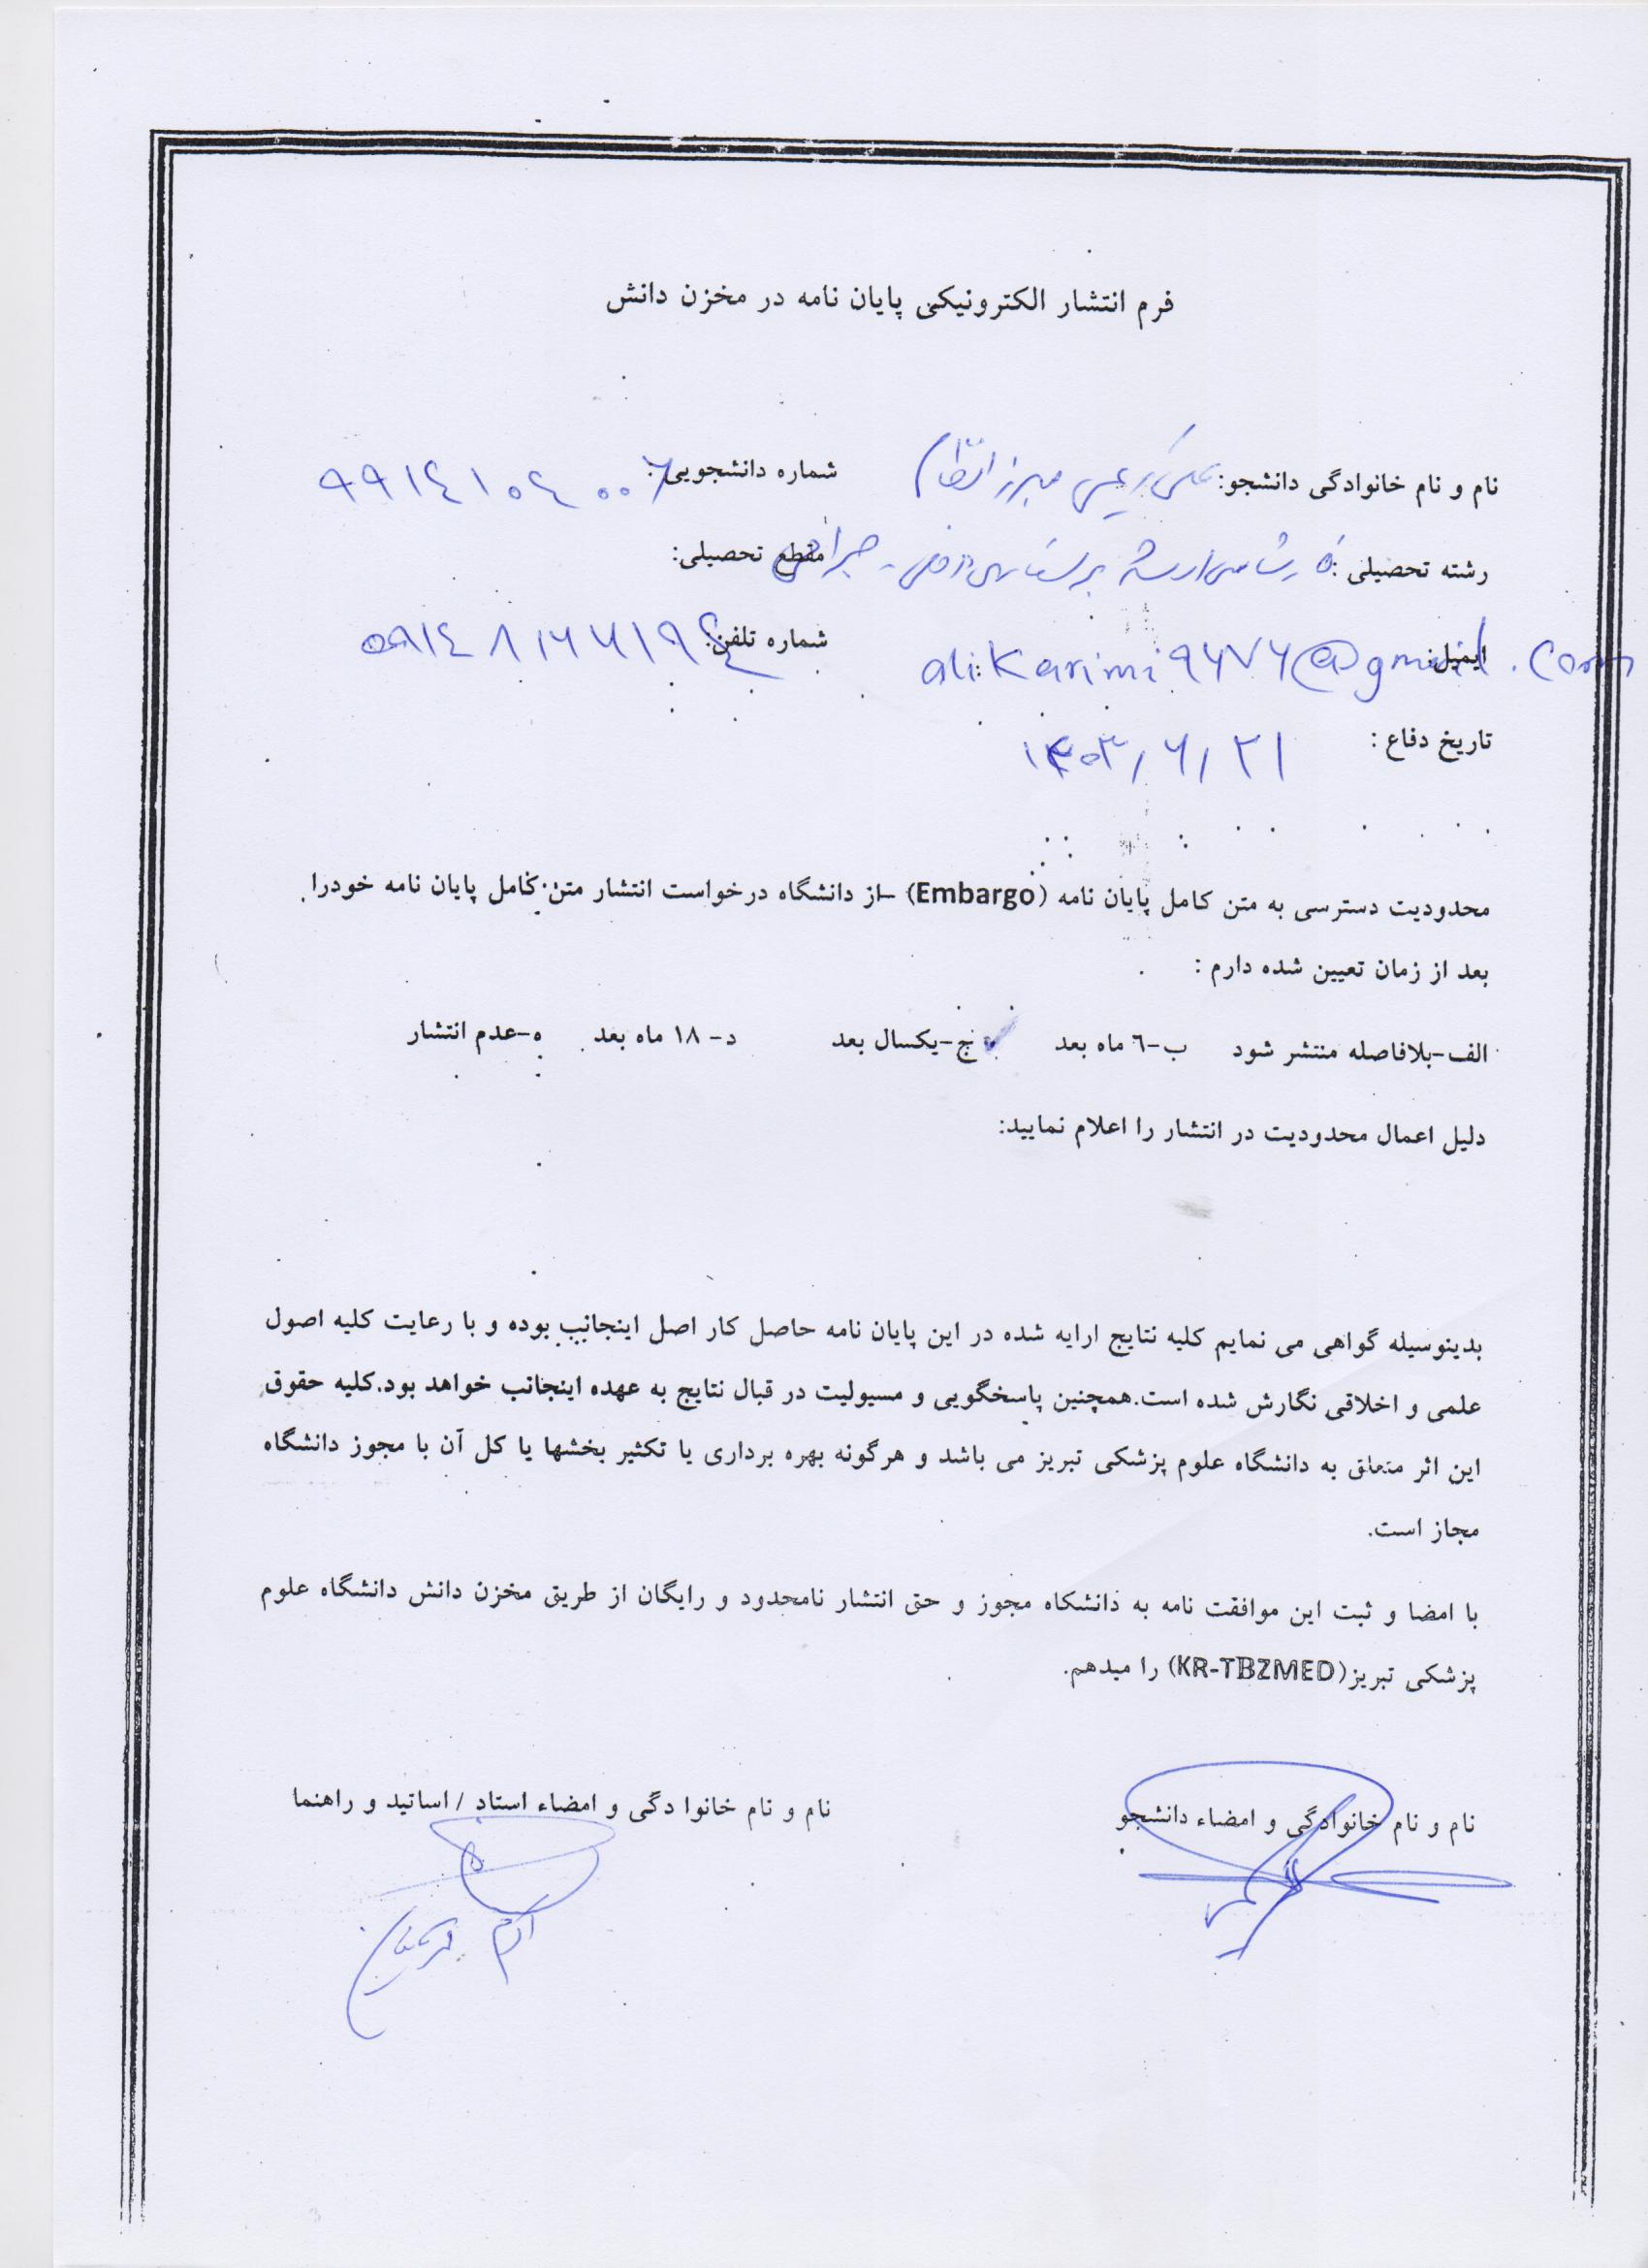 فرم انتشار الکترونیکی پایان نامه در مخزن دانش
نام و نام خانوادگی دانشجو: علی کریمی میرزا نظام شماره دانشجویی: ۹۹۱٤۱۰٤۰۰۶
رشته تحصیلی: کارشناسی ارشد پرستاری داخلی - جراحی مقطع تحصیلی:
ایمیل: alikarimi۹۶۷۶@gmail.com شماره تلفن:
تاریخ دفاع : ۱۴۰۳/۶/۲۱
محدودیت دسترسی به متن کامل پایان نامه (Embargo) –از دانشگاه درخواست انتشار متن کامل پایان نامه خودرا
بعد از زمان تعیین شده دارم :
الف-بلافاصله منتشر شود ب-٦ ماه بعد ✓ ج-یکسال بعد د- ۱۸ ماه بعد ه-عدم انتشار
دلیل اعمال محدودیت در انتشار را اعلام نمایید:
بدینوسیله گواهی می نمایم کلیه نتایج ارایه شده در این پایان نامه حاصل کار اصل اینجانب بوده و با رعایت کلیه اصول
علمی و اخلاقی نگارش شده است.همچنین پاسخگویی و مسیولیت در قبال نتایج به عهده اینجانب خواهد بود.کلیه حقوق
این اثر متعلق به دانشگاه علوم پزشکی تبریز می باشد و هرگونه بهره برداری یا تکثیر بخشها یا کل آن با مجوز دانشگاه
مجاز است.
با امضا و ثبت این موافقت نامه به دانشکاه مجوز و حق انتشار نامحدود و رایگان از طریق مخزن دانش دانشگاه علوم
پزشکی تبریز(KR-TBZMED) را میدهم.
نام و نام خانوادگی و امضاء دانشجو نام و نام خانوا دگی و امضاء استاد / اساتید و راهنما